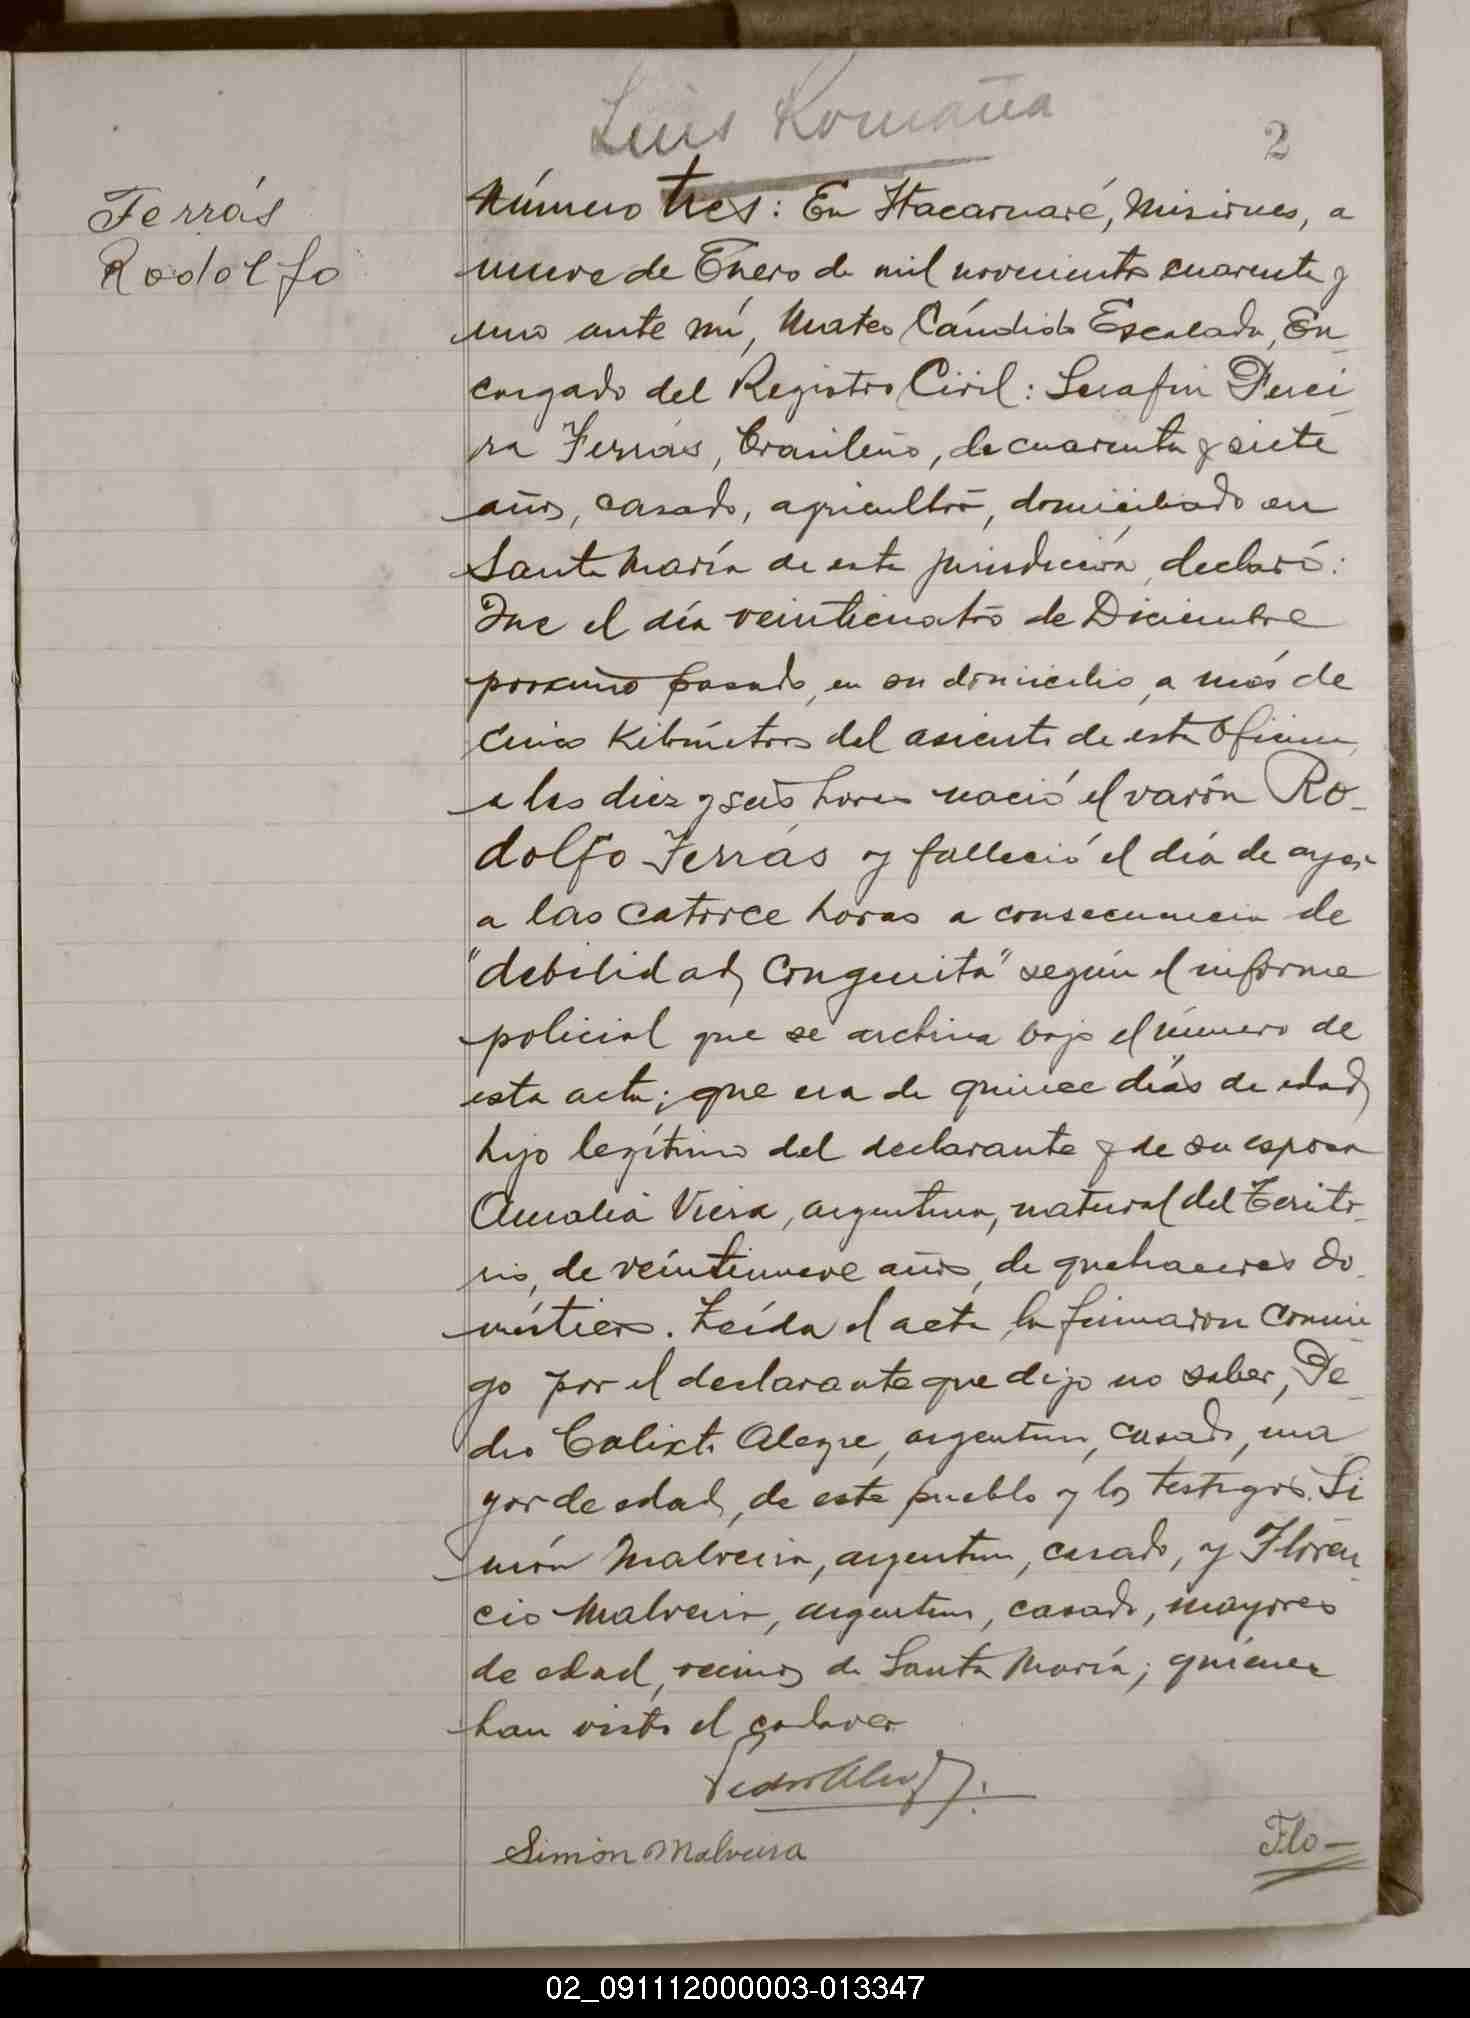 Luis Romaña
2
Ferrás
Rodolfo
Número tres: En Itacaruaré, Misiones, a
nueve de Enero de mil novecientos cuarenta y
uno ante mí, Mateo Cándido Escalada, En
cargado del Registro Civil: Serafin Perei
ra Ferrás, brasileño, de cuarenta y siete
años, casado, agricultor, domiciliado en
Santa María de esta jurisdicción, declaró:
Que el día veinticuatro de Diciembre
proximo pasado, en su domicilio, a más de
cinco Kilómetros del asiento de esta Oficina,
a las diez y seis horas nació el varón Ro-
dolfo Ferrás y falleció el día de ayer
a las catorce horas a consecuencia de
"debilidad congenita" según el informe
policial que se archiva bajo el número de
esta acta; que era de quince días de edad,
hijo legítimo del declarante y de su esposa
Amalia Viera, argentina, natural del Territo-
rio, de veintinueve años, de quehaceres do-
mésticos. Leída el acta, la firmaron conmi
go por el declarante que dijo no saber, Pe-
dro Calixto Alegre, argentino, casado, ma
yor de edad, de este pueblo y los testigos. Si
món Malveira, argentino, casado, y Floren-
cio Malveira, argentino, casado, mayores
de edad, vecinos de Santa María; quienes
han visto el cadaver
Simón Malveira
Flo-
02_091112000003-013347